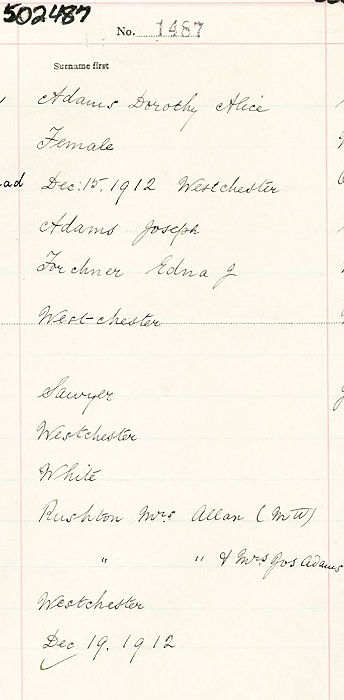 502487
No. 1487
Surname first
Adams Dorothy Alice
Female
ad Dec: 15. 1912 Westchester
Adams Joseph
Forchner Edna J
Westchester
Sawyer
Westchester
White
Rushton Mrs Allan (MW)
" " & Mrs Jos Adams
Westchester
Dec 19. 1912